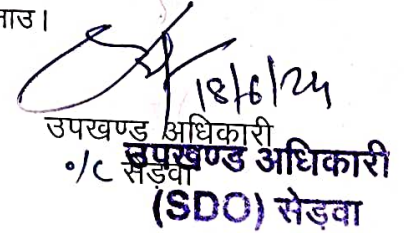 नाउ।
18/6/24
उपखण्ड अधिकारी
०/c सेड़वा
उपखण्ड अधिकारी
(SDO) सेड़वा